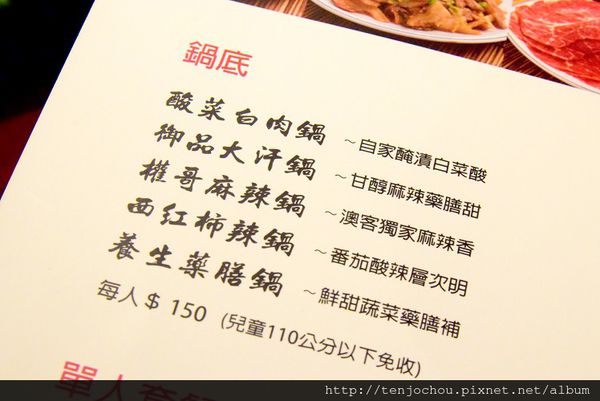 鍋底
酸菜白肉鍋 ~自家醃漬白菜酸
御品大汗鍋 ~甘醇麻辣藥膳甜
權哥麻辣鍋 ~澳客獨家麻辣香
西紅柿辣鍋 ~番茄酸辣層次明
養生藥膳鍋 ~鮮甜蔬菜藥膳補
每人 $ 150 (兒童110公分以下免收)
單人套餐
http://tenjochou.pixnet.net/album